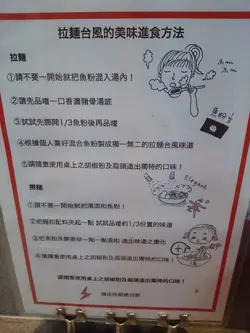 拉麵台風的美味進食方法
拉麵
①請不要一開始就把魚粉混入湯內！
②請先品嚐一口香濃豬骨湯底
③試試先挪開1/3魚粉後再品嚐
④根據個人喜好混合魚粉製成獨一無二的拉麵台風味道
⑤請隨意使用桌上之胡椒粉及蒜頭造出獨特的口味！
撈麵
①請不要一開始就把湯混和魚粉！
②把麵和配料夾起一點 試試品嚐約1/3份量的味道
Elegant
④請隨意使用桌上之胡椒粉及蒜頭造出獨特的口味！
請隨意使用桌上之胡椒粉及蒜頭造出獨特的口味！